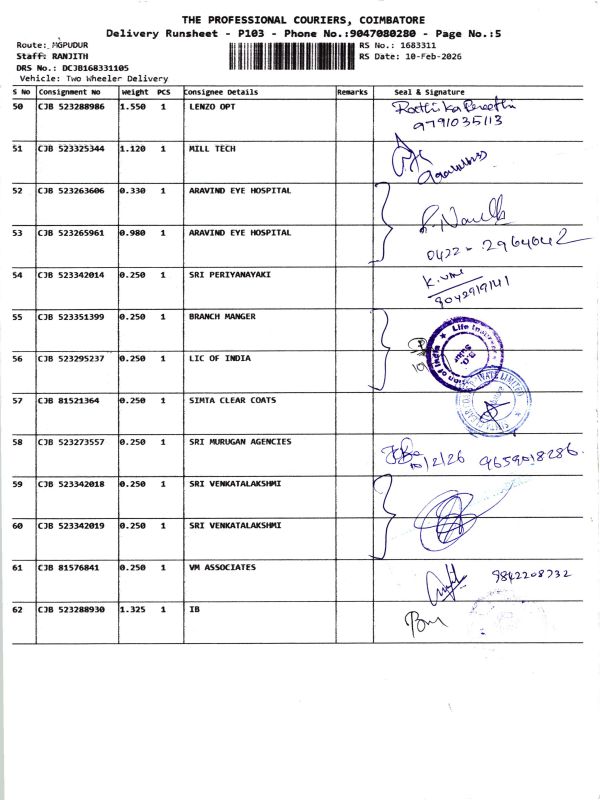 THE PROFESSIONAL COURIERS, COIMBATORE
Delivery Runsheet - P103 - Phone No.:9047080280 - Page No.:5
Route: MGPUDUR
RS No.: 1683311
Staff: RANJITH
RS Date: 10-Feb-2026
DRS No.: DCJB168331105
Vehicle: Two Wheeler Delivery
S No Consignment No Weight PCS Consignee Details Remarks Seal & Signature
50 CJB 523288986 1.550 1 LENZO OPT
9791035113
51 CJB 523325344 1.120 1 MILL TECH
52 CJB 523263606 0.330 1 ARAVIND EYE HOSPITAL
53 CJB 523265961 0.980 1 ARAVIND EYE HOSPITAL
0422 - 2964642
54 CJB 523342014 0.250 1 SRI PERIYANAYAKI
55 CJB 523351399 0.250 1 BRANCH MANGER
56 CJB 523295237 0.250 1 LIC OF INDIA
57 CJB 81521364 0.250 1 SIMTA CLEAR COATS
58 CJB 523273557 0.250 1 SRI MURUGAN AGENCIES
10/2/26 9659018286
59 CJB 523342018 0.250 1 SRI VENKATALAKSHMI
60 CJB 523342019 0.250 1 SRI VENKATALAKSHMI
61 CJB 81576841 0.250 1 VM ASSOCIATES 9842208732
62 CJB 523288930 1.325 1 IB